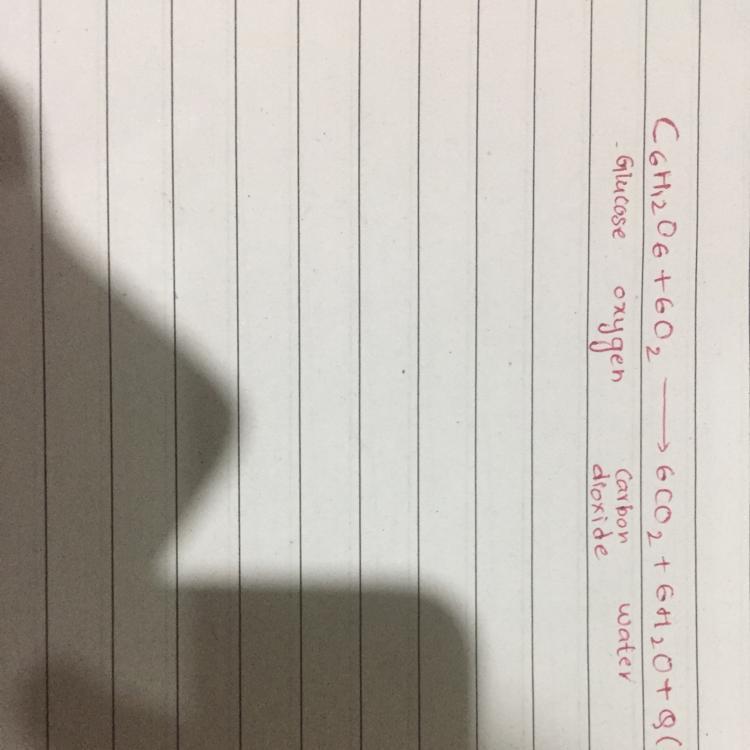 C6H12O6 + 6O2 ⟶ 6CO2 + 6H2O +
- Glucose oxygen Carbon dioxide water